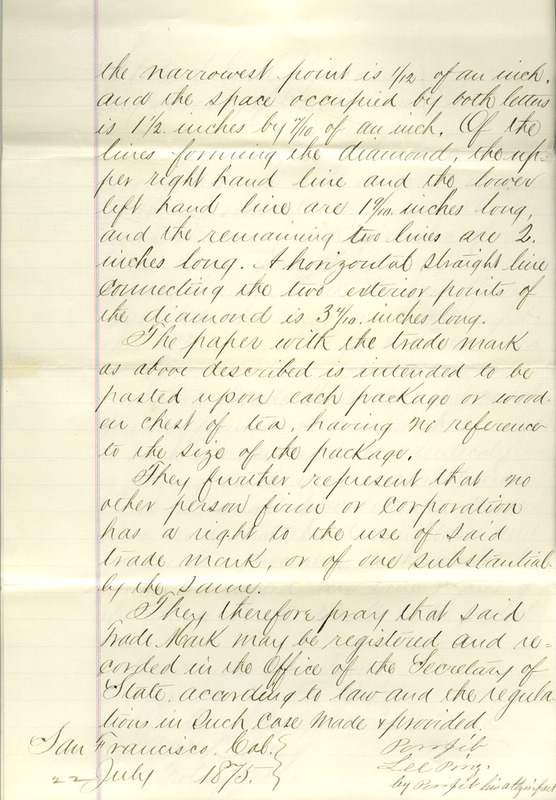 the narrowest point is 1/12 of an inch.
and the space occupied by both letters
is 1 1/2 inches by 7/10 of an inch. Of the
lines forming the diamond, the up-
per right hand line and the lower
left hand line are 1 9/10 inches long,
and the remaining two lines are 2.
inches long. A horizontal straight line
connecting the two exterior points of
the diamond is inches long.
The paper with the trade mark
as above described is intended to be
pasted upon each package or wood-
en chest of tea, having no reference
to the size of the package.
They further represent that no
other person firm or corporation
has a right to the use of said
trade mark, or of one substantial-
ly the same.
They therefore pray that said
Trade Mark may be registered and re=
corded in the Office of the Secretary of
State, according to law and the regula
tions in such case made & provided
San Francisco, Cal.
22 July 1875.
Lee Ping.
by his atty in fact